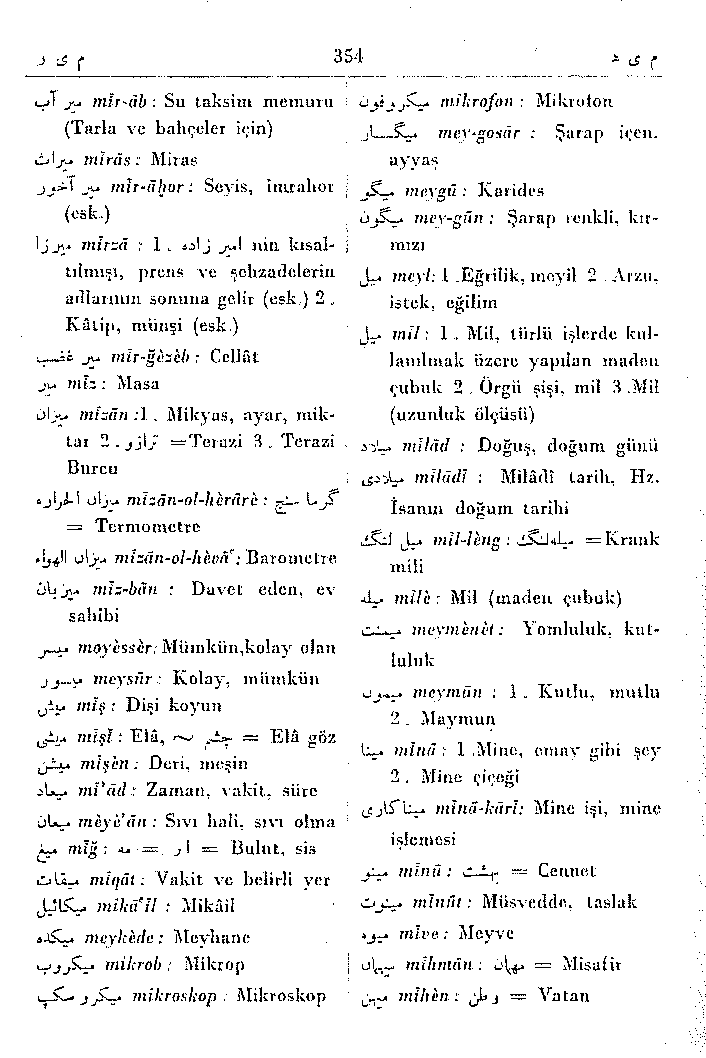 م ی ر
354
م ی ه
میر آب mīr-āb : Su taksim memuru
(Tarla ve bahçeler için)
میراث mīrās : Miras
میر آخور mīr-āḫor : Seyis, imrahor
(esk.)
میرزا mīrzā : 1 . امیر زاده nin kısal-
tılmışı, prens ve şehzadelerin
adlarının sonuna gelir (esk.) 2 .
Kâtip, münşi (esk.)
میر غضب mīr-ğèzèb : Cellât
میز mīz : Masa
میزان mīzān :1 . Mikyas, ayar, mik-
tar 2 . ترازو =Terazi 3 . Terazi
Burcu
میزان الحراره mīzān-ol-hèrārè : گرما سنج
= Termometre
میزان الهواء mīzān-ol-hèvā' : Barometre
میزبان mīz-bān : Davet eden, ev
sahibi
میسر moyèssèr: Mümkün,kolay olan
میسور meysūr : Kolay, mümkün
میش mīş : Dişi koyun
میشی mīşī : Elâ, ~ چشم = Elâ göz
میشن mīşèn : Deri, meşin
میعاد mī'ād : Zaman, vakit, süre
میعان mèyè'ān : Sıvı hali, sıvı olma
میغ mīğ : مه = ابر = Bulut, sis
میقات mīqāt : Vakit ve belirli yer
میکائیل mīkā'īl : Mikâil
میکده meykède : Meyhane
میکروب mīkrob : Mikrop
میکروسکپ mīkroskop : Mikroskop
میکروفون mīkrofon : Mikrofon
میگسار mey-gosār : Şarap içen,
ayyaş
میگو meygū : Karides
میگون mey-gūn : Şarap renkli, kır-
mızı
میل meyl: 1 .Eğrilik, meyil 2 . Arzu,
istek, eğilim
میل mīl : 1 . Mil, türlü işlerde kul-
lanılmak üzere yapılan maden
çubuk 2 . Örgü şişi, mil 3 .Mil
(uzunluk ölçüsü)
میلاد mīlād : Doğuş, doğum günü
میلادی mīlādī : Milâdî tarih, Hz.
İsanın doğum tarihi
میل لنگ mīl-lèng : میله لنگ =Krank
mili
میله mīlè : Mil (maden çubuk)
میمنت meymènèt : Yomluluk, kut-
luluk
میمون meymūn : 1 . Kutlu, mutlu
2 . Maymun
مینا mīnā : 1 .Mine, emay gibi şey
2 . Mine çiçeği
میناکاری mīnā-kārī: Mine işi, mine
işlemesi
مینو mīnū : بهشت = Cennet
مینوت mīnūt : Müsvedde, taslak
میوه mīve : Meyve
میهمان mīhmān : مهمان = Misafir
میهن mīhèn : وطن = Vatan